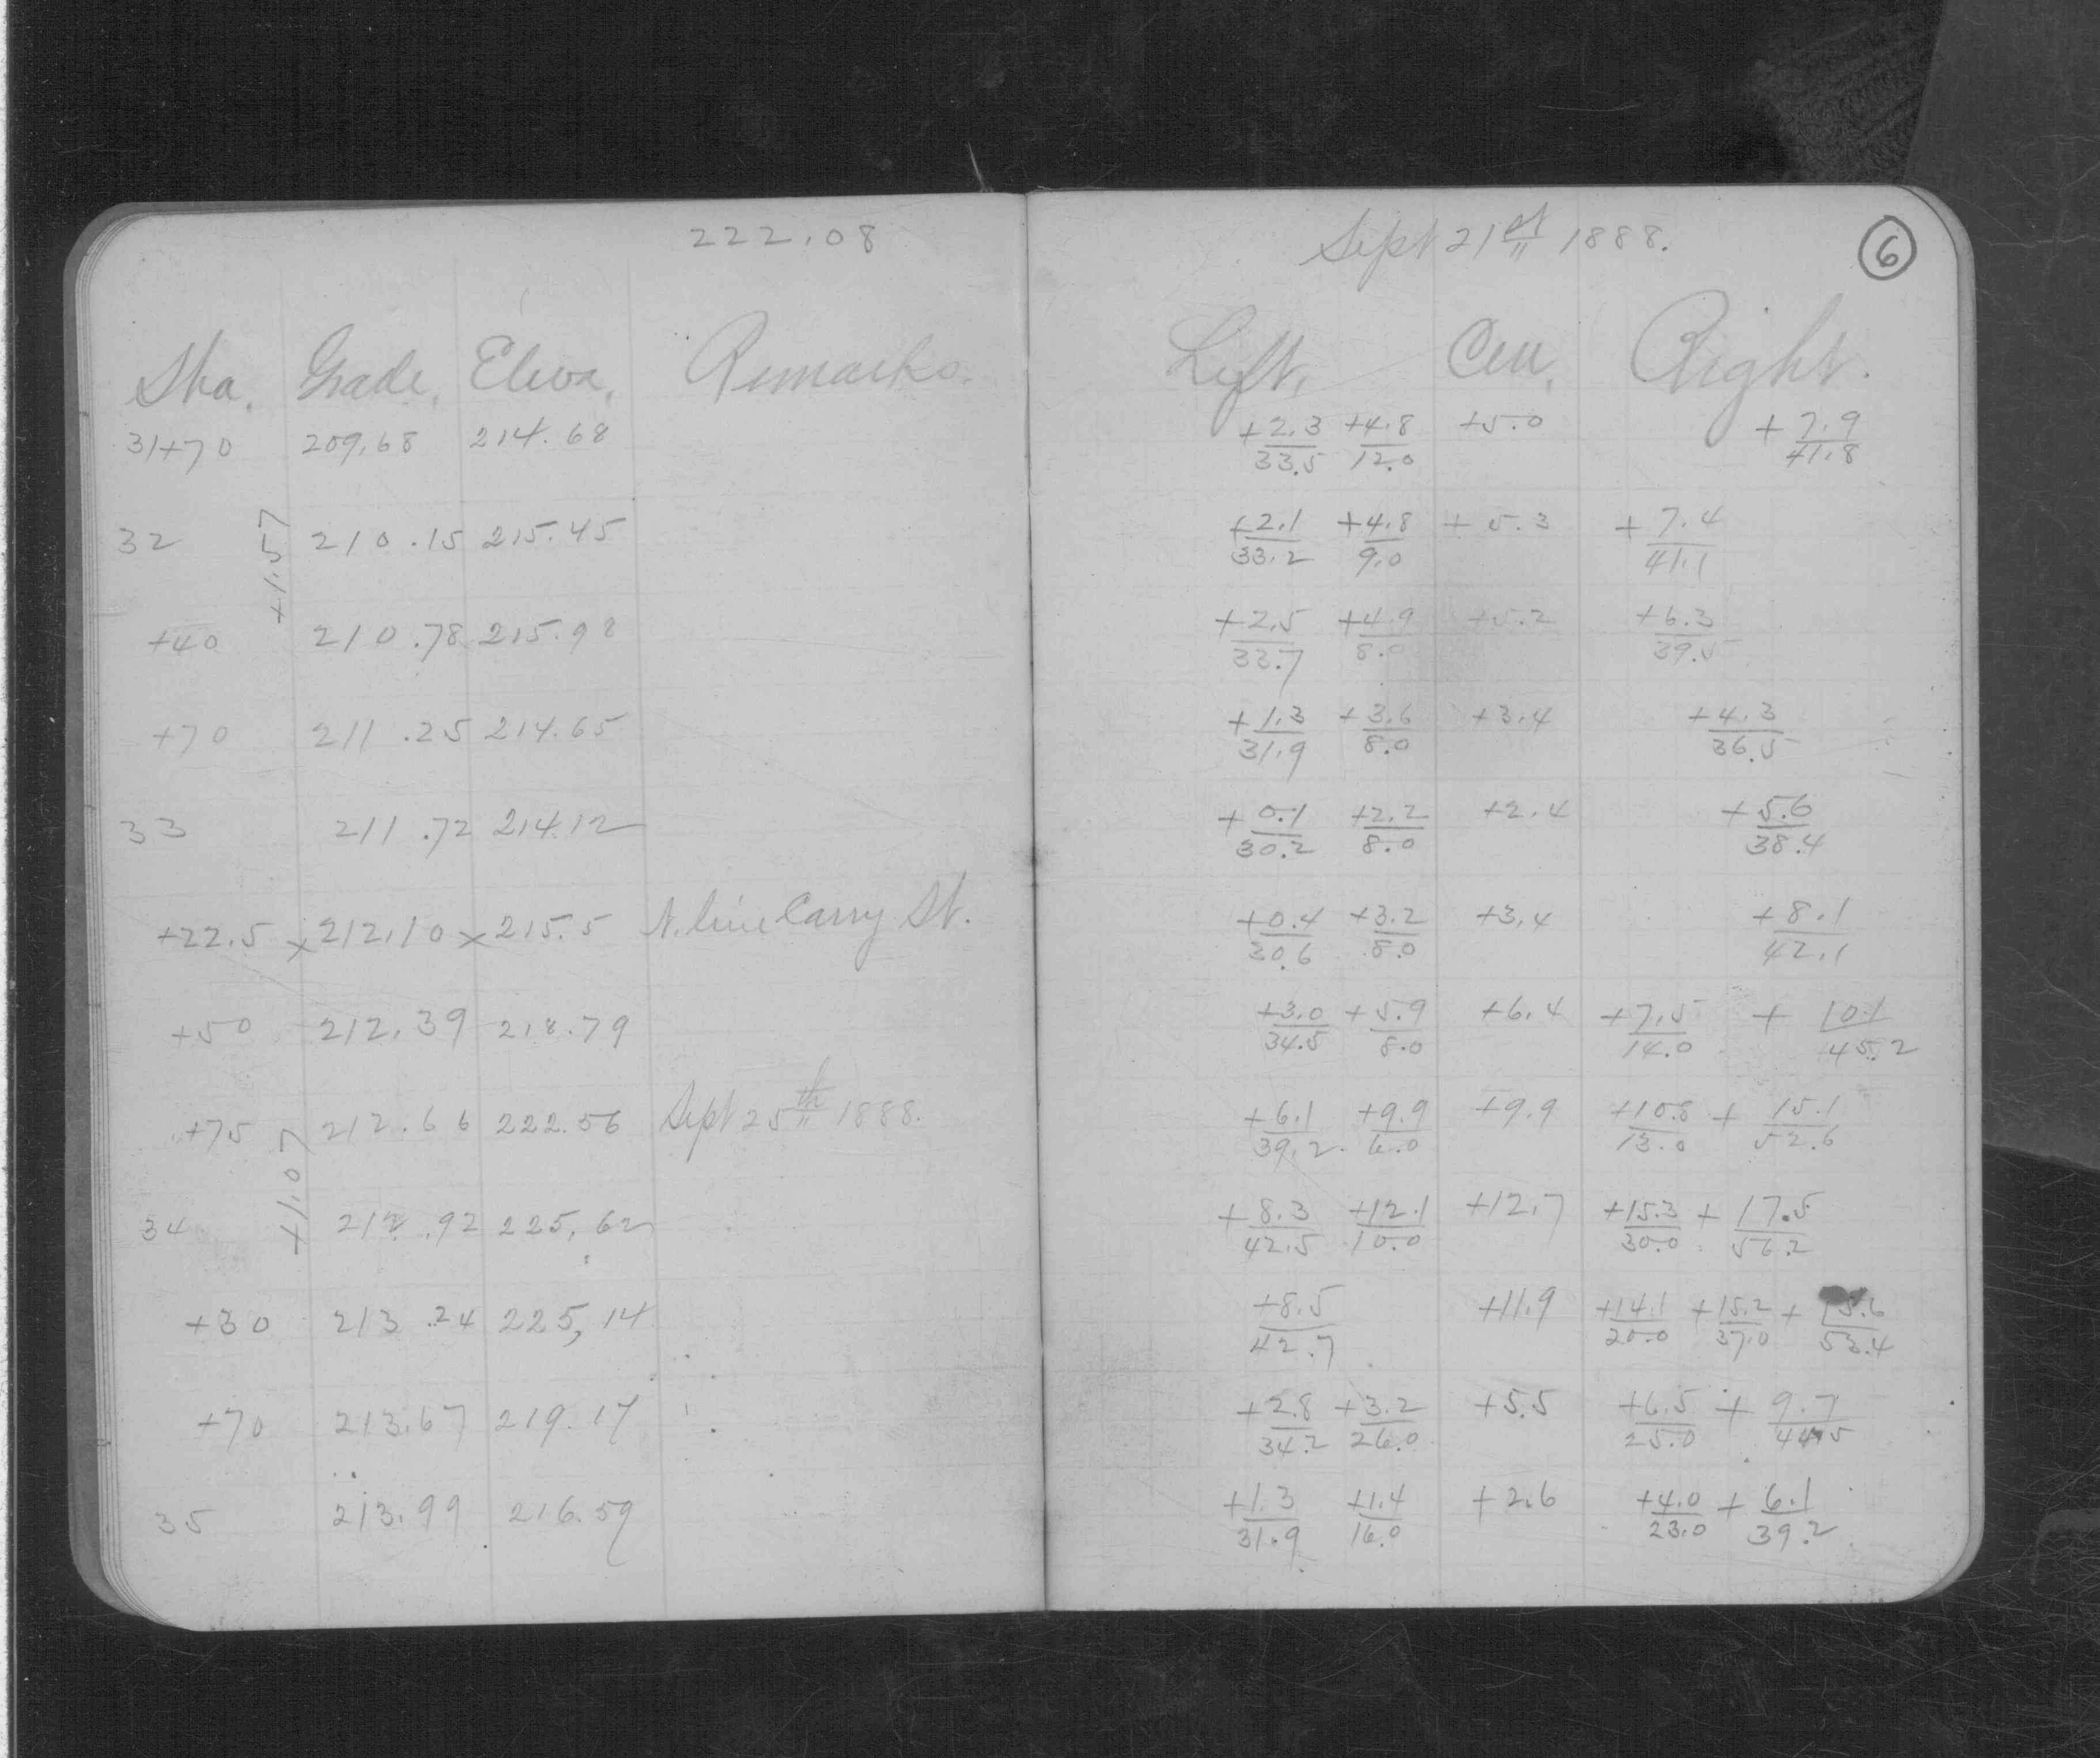 222.08
Sept 21st 1888.
6
Sta. Grade, Eleva, Remarks. Left, Cen, Right.
31+70 209.68 214.68 +2.3/33.5 +4.8/12.0 +5.0 +7.9/41.8
+1.57
32 210.15 215.45 +2.1/33.2 +4.8/9.0 +5.3 +7.4/41.1
+40 210.78 215.98 +2.5/33.7 +4.9/8.0 +5.2 +6.3/39.5
+70 211.25 214.65 +1.3/31.9 +3.6/8.0 +3.4 +4.3/36.5
33 211.72 214.12 +0.1/30.2 +2.2/8.0 +2.4 +5.6/38.4
+22.5 x 212.10 x 215.5 N. line Carry St. +0.4/30.6 +3.2/8.0 +3.4 +8.1/42.1
+50 212.39 218.79 +3.0/34.5 +5.9/8.0 +6.4 +7.5/14.0 +10.1/45.2
+75 212.66 222.56 Sept 25th 1888. +6.1/39.2 +9.9/6.0 +9.9 +10.8/13.0 +15.1/52.6
+1.07
34 212.92 225.62 +8.3/42.5 +12.1/10.0 +12.7 +15.3/30.0 +17.5/56.2
+30 213.24 225,14 +8.5/42.7 +11.9 +14.1/20.0 +15.2/37.0 +15.6/53.4
+70 213.67 219.17 +2.8/34.2 +3.2/26.0 +5.5 +6.5/25.0 +9.7/44.5
35 213.99 216.59 +1.3/31.9 +1.4/16.0 +2.6 +4.0/23.0 +6.1/39.2